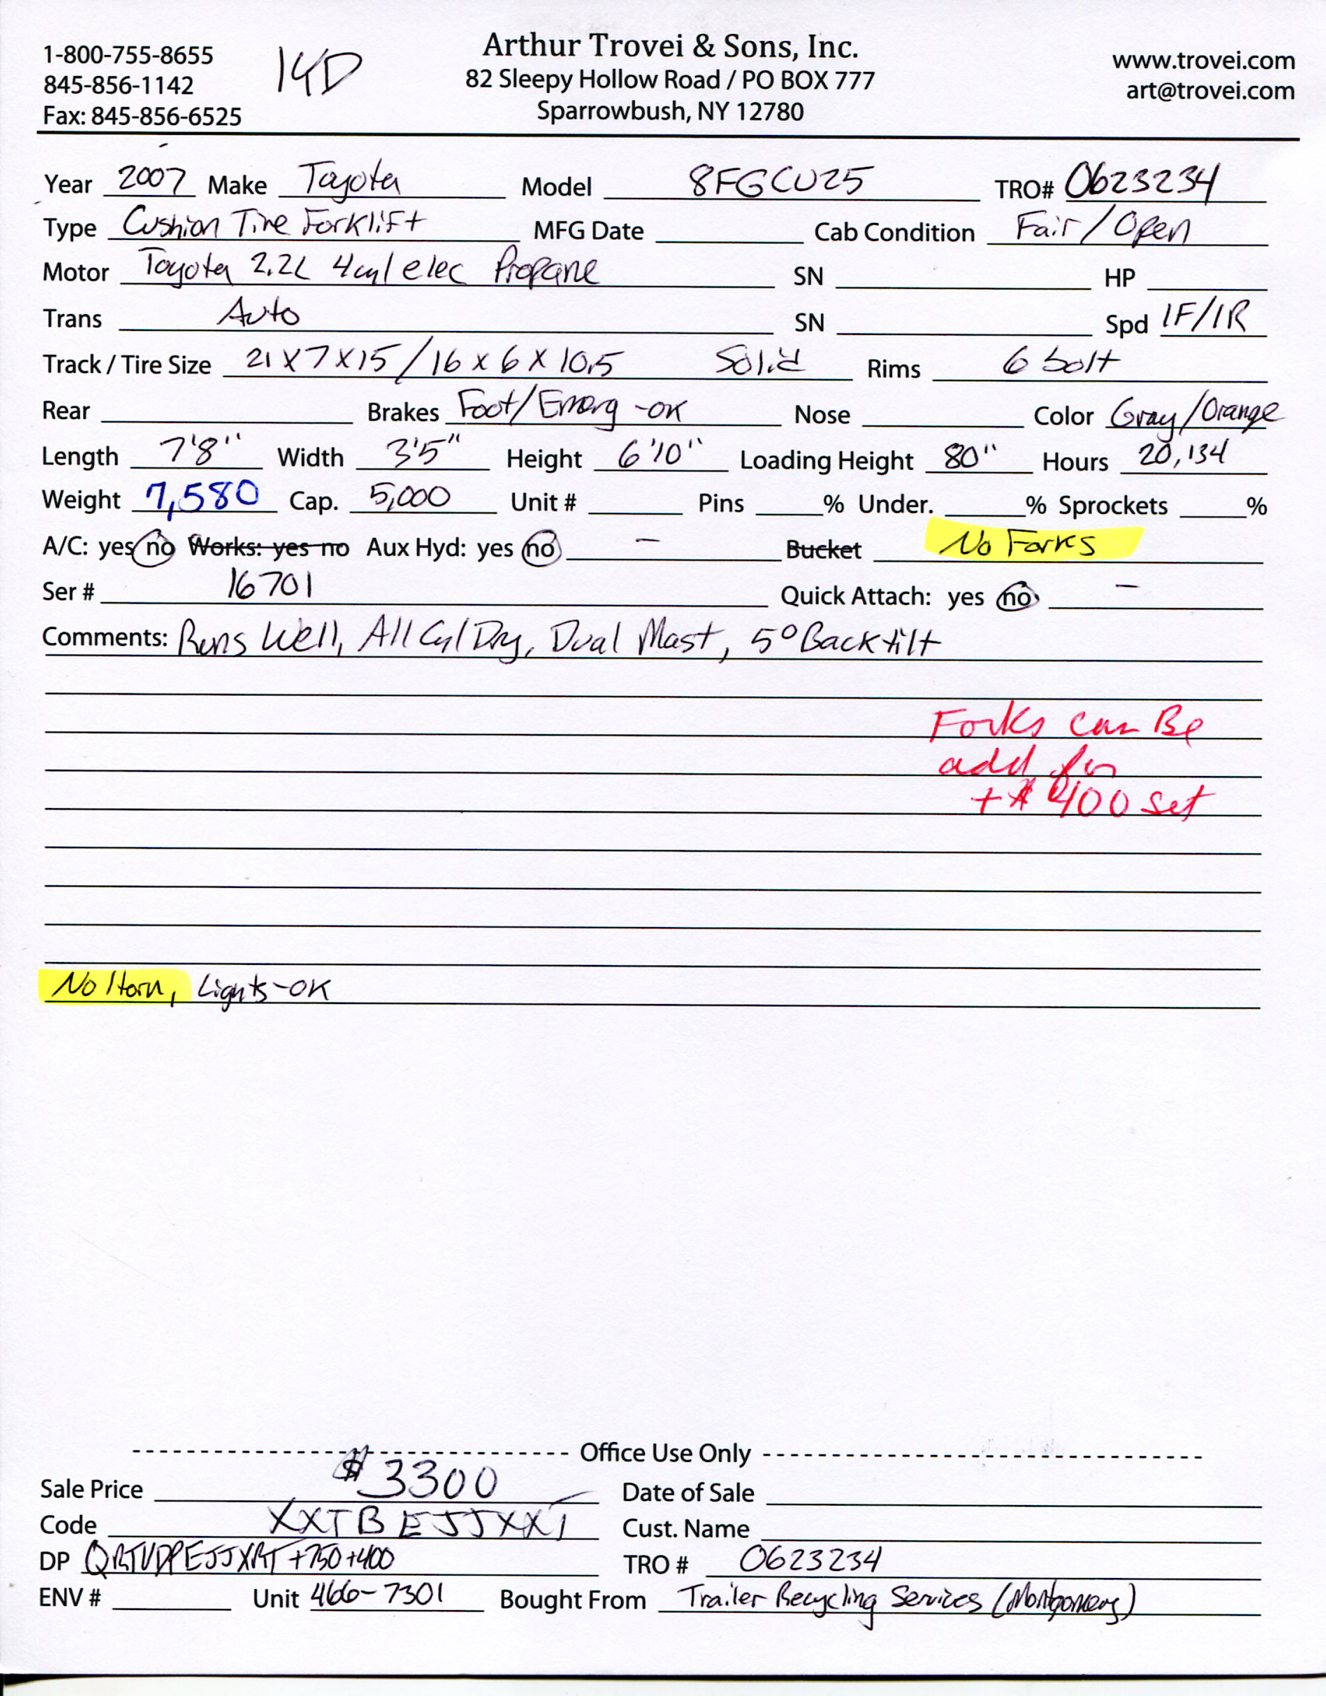 1-800-755-8655
845-856-1142
Fax: 845-856-6525
Arthur Trovei & Sons, Inc.
82 Sleepy Hollow Road / PO BOX 777
Sparrowbush, NY 12780
www.trovei.com
art@trovei.com
Year 2007 Make Toyota Model 8FGCU25 TRO# 0623234
Type Cushion Tire Forklift MFG Date Cab Condition Fair/Open
Motor Toyota 2.2L 4cyl elec Propane SN HP
Trans Auto SN Spd 1F/1R
Track / Tire Size 21x7x15/16x6x10.5 Solid Rims 6 bolt
Rear Brakes Foot/Emerg-OK Nose Color Gray/Orange
Length 7'8" Width 3'5" Height 6'10" Loading Height 80" Hours 20,134
Weight 7,580 Cap. 5,000 Unit # Pins % Under. % Sprockets %
A/C: yes no Works: yes no Aux Hyd: yes no – Bucket No Forks
Ser # 16701 Quick Attach: yes no –
Comments: Runs Well, All Cyl Dry, Dual Mast, 5° Backtilt
Forks can Be
add for
+$400 set
No Horn, Lights-OK
Office Use Only
Sale Price $3300 Date of Sale
Code XXTBEJJXXT Cust. Name
DP +750+400 TRO # 0623234
ENV # Unit 466-7301 Bought From Trailer Recycling Services (Montgomery)